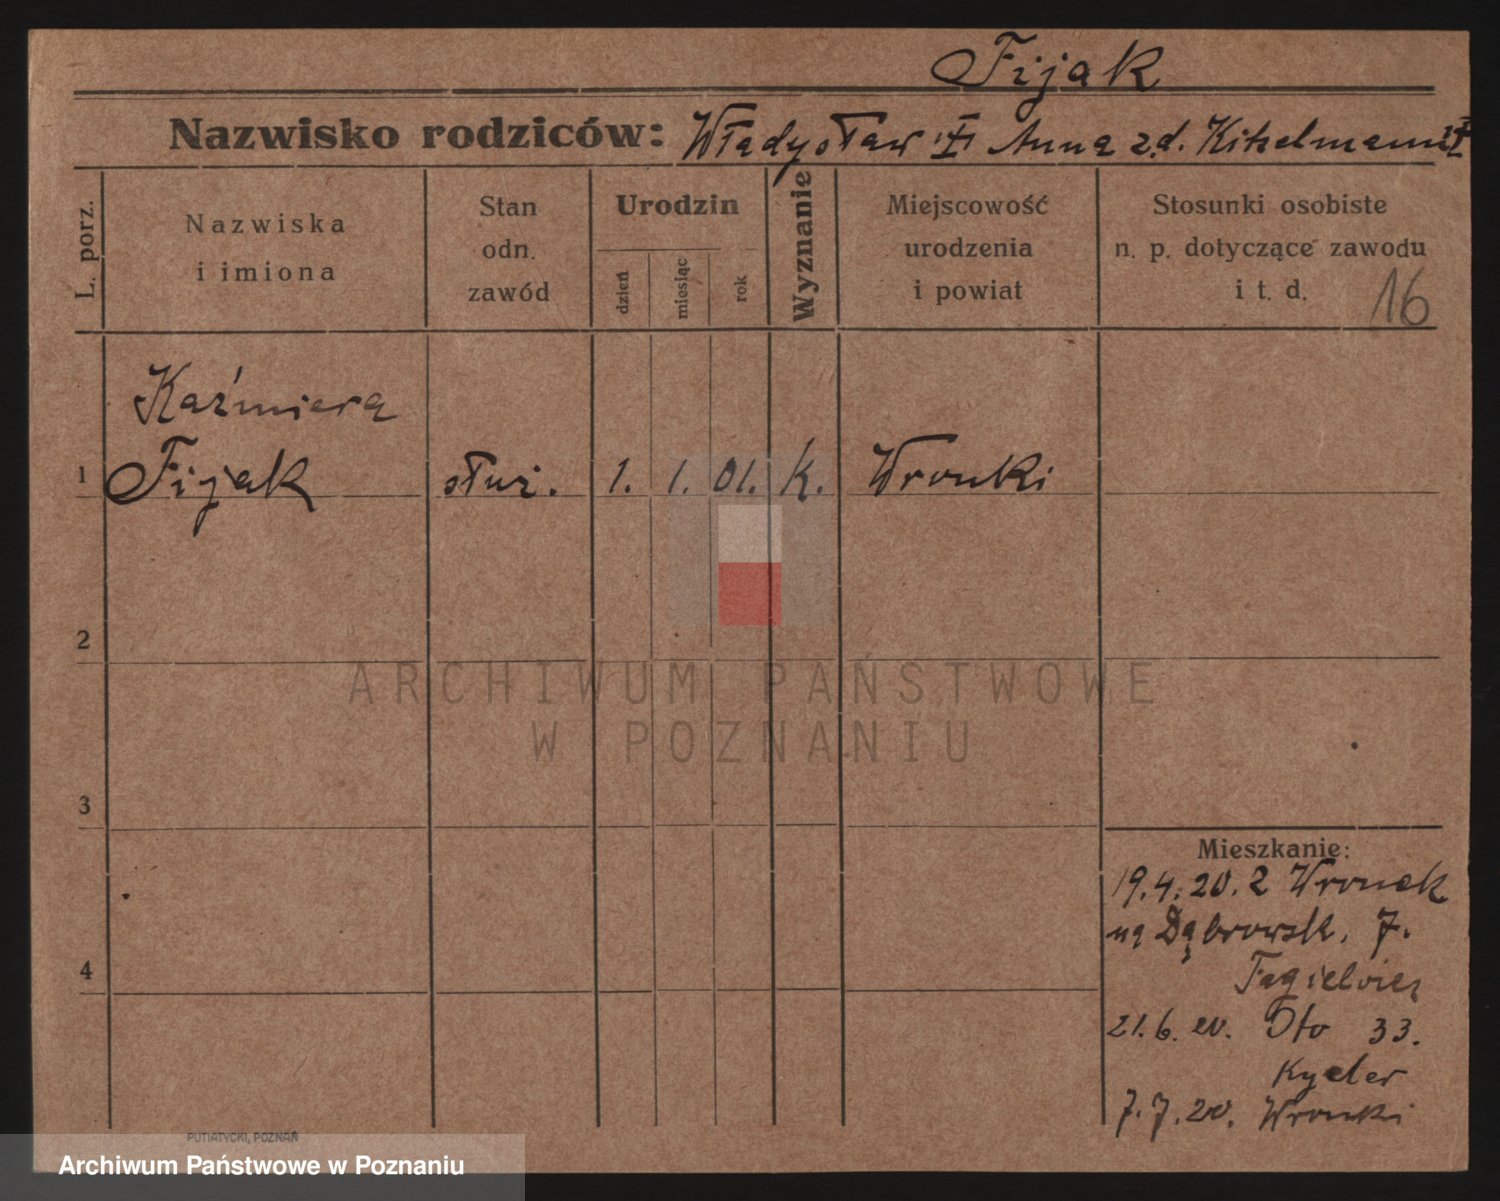 Fijak
Nazwisko rodziców: Władysław Anna z.d. Kitzelmann
L. porz.
Nazwiska
i imiona
Stan
odn.
zawód
Urodzin
dzień
miesiąc
rok
Wyznanie
Miejscowość
urodzenia
i powiat
Stosunki osobiste
n. p. dotyczące zawodu
i t. d.
16
Kaźmiera
1 Fijak służ. 1. 1. 01. k. Wronki
2
ARCHIWUM PAŃSTWOWE
W POZNANIU
3
Mieszkanie:
19.4.20. z Wronek
na Dąbrowsk. 7.
4
21.6.20. Sto 33.
7.7.20. Wronki
PUTIATYCKI, POZNAŃ
Archiwum Państwowe w Poznaniu